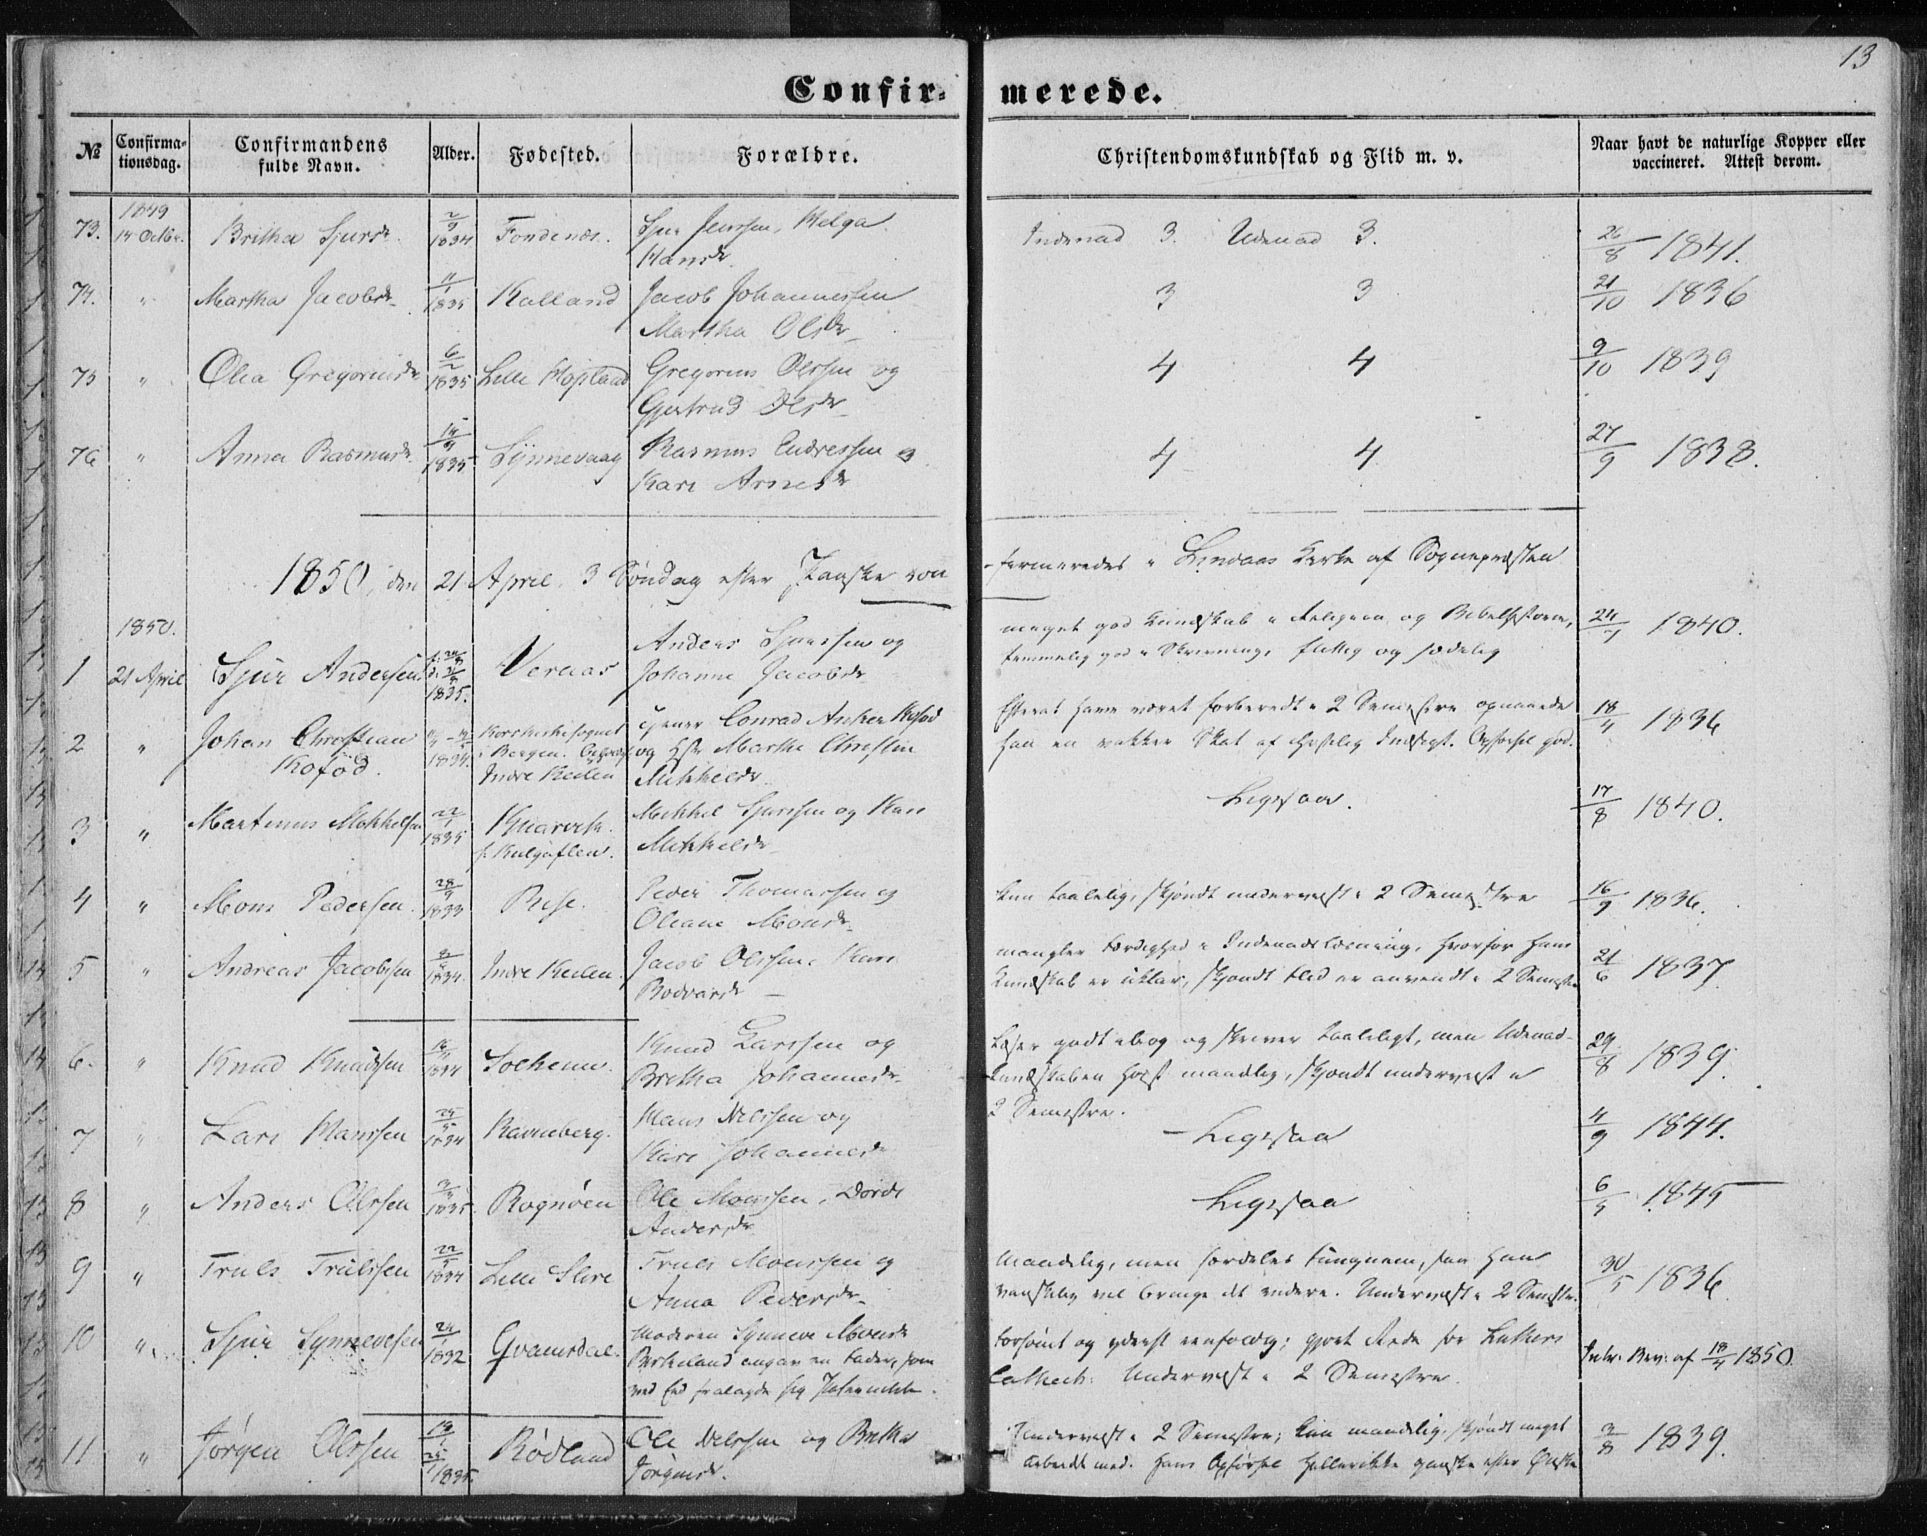 13
Confir- merede.
№ Confirmationsdag. Confirmandens fulde Navn. Alder. Fødested. Forældre. Christendomskundskab og Flid m. v. Naar havt de naturlige Kopper eller vaccineret. Attest derom.
1849
73. 14 Octbr. Britha Sjursdr. 2/9 1834 Fondenæs. Sjur Hansdr. Indenad 3. Udenad 3. 26/8 1841.
74. " Martha Jacobsdr. 1835 Kalland Jacob Johannessen Martha Olsdr 3 3 21/10 1836
75 " Olia Gregoriusdr 6/2 1835 Lille Gregorius Olssen og Gjertrud Olsdr 4 4 9/10 1839
76 " Anna Rasmusdr. 1835 Lynnevaag Rasmus Endressen og Kari Arnesdr 4 4 27/9 1838.
1850, den 21 April, 3 Søndag efter Paaske con-
firmeredes i Lindaas Kirke af Sognepræsten
1850.
1 21 April Sjur Andersen 1835. Veraas Anders Sjurssen og Johanne Jacobsdr. meget god Kundskab i Religion og Bibelhistorie,
temmelig god i Skrivning, flittig og sædelig 1840.
2 " Johan Christian Kofod. 1834. Korskirkesognet i Bergen. Indre Keilen Conrad Anker Kofod og Hstr Marthe Christine Mikkelsdr. Efterat have været forberedt i 2 Semestre opnaaede
han en vakker Skat af christelig Indsigt. Opførsel god. 18/4 1836
3 " Martinus Mikkelsen 22/1 1835 Knarvik. Mikkel Sjurssen og Kari Mikkelsdr Ligesaa. 17/8 1840.
4 " Mons Pedersen. 28/9 1833 Risse. Peder Thomassen og Oleane Monsdr. Kun taalelig, skjøndt underviist i 2 Semestre 16/9 1836.
5 " Andreas Jacobsen 1834. Indre Keilen. Jacob Olssen, Kari mangler Færdighed i Indenadslæsning, hvorfor hans
Kundskab er uklar, skjøndt Flid er anvendt i 2 Semestre 21/6 1837.
6. " Knud Knudssen 1834 Solheim. Knud Larssen og Britha Johannesdr. Læser godt i Bog og skriver taaleligt, men Udenad-
kundskaben høist maadelig, skjøndt underviist i
2 Semestre. 29/8 1839.
7 " Lars Hanssen 1834 Ramberg. Hans Nilssen og Kari Johannesdr Ligesaa 4/9 1844.
8 " Anders Olssen 1835. Rognøen Ole Monssen, Dorde Andersdr Ligesaa 1845
9 " Truls Trulssen 1834 Lille Truls Monssen og Anna Pedersdr. Maadelig, men særdeles tungnem, saa han
vanskelig vil bringe det videre. Underviist i 2 Semestre. 30/5 1836.
10 " Sjur Synnevesen 24/1 1832 Qvamsdal. Moderen Synneve Monsdr
Birkeland angav en Fader, som
ved Eed fralagde sig Paternitet. Forsømt og yderst eenfoldig; gjort Rede for Luthers
Cathech: Underviist i 2 Semestre. Intr. Bev: af 18/4 1850.
11 " Jørgen Olssen 1835. Rödland Ole Nilssen og Britha Jørgensdr. Underviist i 2 Semestre; kun maadelig, skjøndt meget
arbeidt med. Hans Opførsel hellerikke ganske efter Ønske 3/8 1839.